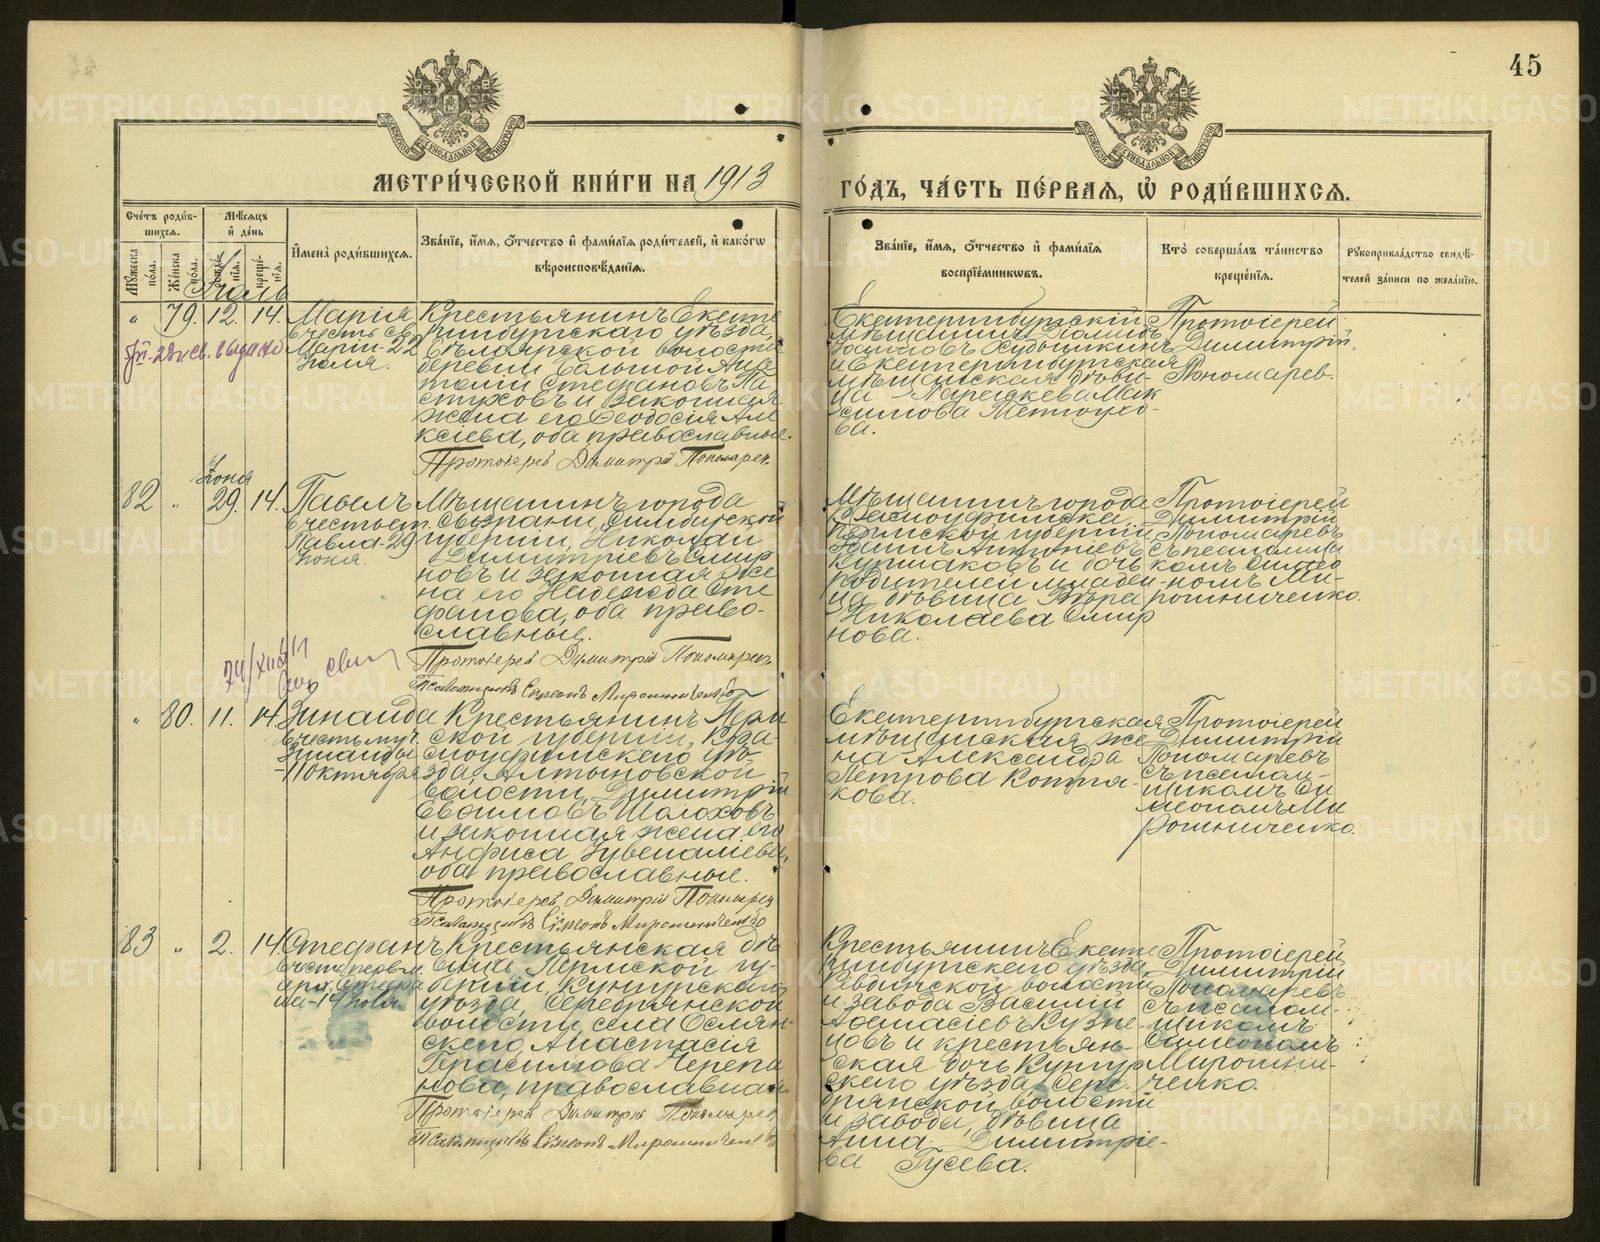 45
МЕТРИ́ЧЕСКОЙ КНИ́ГИ НА 1913
ГО́ДЪ, ЧА́СТЬ ПЕ́РВАЯ, Ѡ҆ РОДИ́ВШИХСЯ.
Сче́тъ роди́в-
шихся.
Мѣ́сяцъ
и҆ де́нь
И҆мена̀ роди́вшихся.
Зва́нїе, и҆́мя, ѻ҆́тчество и҆ фами́лїя роди́телей, и҆ како́гѡ
вѣроисповѣ́данїя.
Зва́нїе, и҆́мя, ѻ҆́тчество и҆ фами́лїя
воспрїе́мниковъ.
Кто̀ соверша́лъ та́инство
креще́нїя.
Рꙋкоприкла́дство свидѣ́-
телей за́писи по жела́нїю.
Мꙋ́жеска
пола.
Же́нска
пола.
рожде́-
нїя.
креще́-
нїя.
Іюль
" 79. 12. 14.
Марія
в честь св.
Маріи-22
Іюля.
Крестьянинъ Екате
ринбургскаго уѣзда,
Бѣлоярской волости
деревни Большой Ана
толій Стефановъ Па
стуховъ и законная
жена его Ѳеодосія Але
ксѣева, оба православные.
Протоіерей Димитрій Пономарев
Екатеринбургскій
мѣщанинъ
и Екатеринбургская
мѣщанская дѣви-
ца Параскева Мак
симова
ва.
Протоіерей
Димитрій
Пономарев.
Іюня
82 " 29. 14.
Павелъ
в честь ап.
Павла-29
Іюня.
Мѣщанинъ города
Сызрани, Симбирской
губерніи, Николай
Димитріевъ Смир
новъ и законная же
на его Надежда Сте
фанова, оба право-
славные.
Протоіерей Димитрій Пономарев
Псаломщикъ Симеонъ Мирошниченко
Мѣщанинъ города
Красноуфимска,
Пермской губерніи,
Іоаннъ Антоніевъ
и дочь
родителей младен
ца дѣвица Вѣра
Николаева Смир
нова.
Протоіерей
Димитрій
Пономаревъ
съ псаломщи
комъ Симео
номъ Ми-
рошниченко.
" 80. 11. 14.
Зинаида
в честь муч.
Зинаиды
-11 октября
Крестьянинъ Перм
ской губерніи, Кра-
сноуфимскаго уѣ-
зда, Алтыновской
волости, Димитрій
Евѳимовъ Шолоховъ
и законная жена его
Анфиса Іувеналіева,
оба православные.
Протоіерей Димитрій Пономарев
Псаломщикъ Симеонъ Мирошниченко
Екатеринбургская
мѣщанская же-
на Александра
Петрова Котля-
кова.
Протоіерей
Димитрій
Пономаревъ
съ псалом-
щикомъ Си
меономъ Ми
рошниченко.
83 " 2. 14.
Стефанъ
в честь первом.
арх. Стефа
на-14 Іюля
Крестьянская дѣ
вица Пермской гу-
берніи, Кунгурскаго
уѣзда, Серебрянской
волости, села Ослян-
скаго Анастасія
Герасимова Черепа
нова, православная.
Протоіерей Димитрій Пономарев
Псаломщикъ Симеонъ Мирошниченко
Крестьянинъ Екате
ринбургскаго уѣзда
Ревдинской волости
и завода Василій
Аѳанасіевъ Кузне-
цовъ и крестьян-
ская дочь Кунгур
скаго уѣзда, Сере-
брянской волости
и завода, дѣвица
Анна Димитріе-
ва Гусева.
Протоіерей
Димитрій
Пономаревъ
съ псалом-
щикомъ
Симеономъ
Мирошни-
ченко.
METRIKI.GASO-URAL.RU